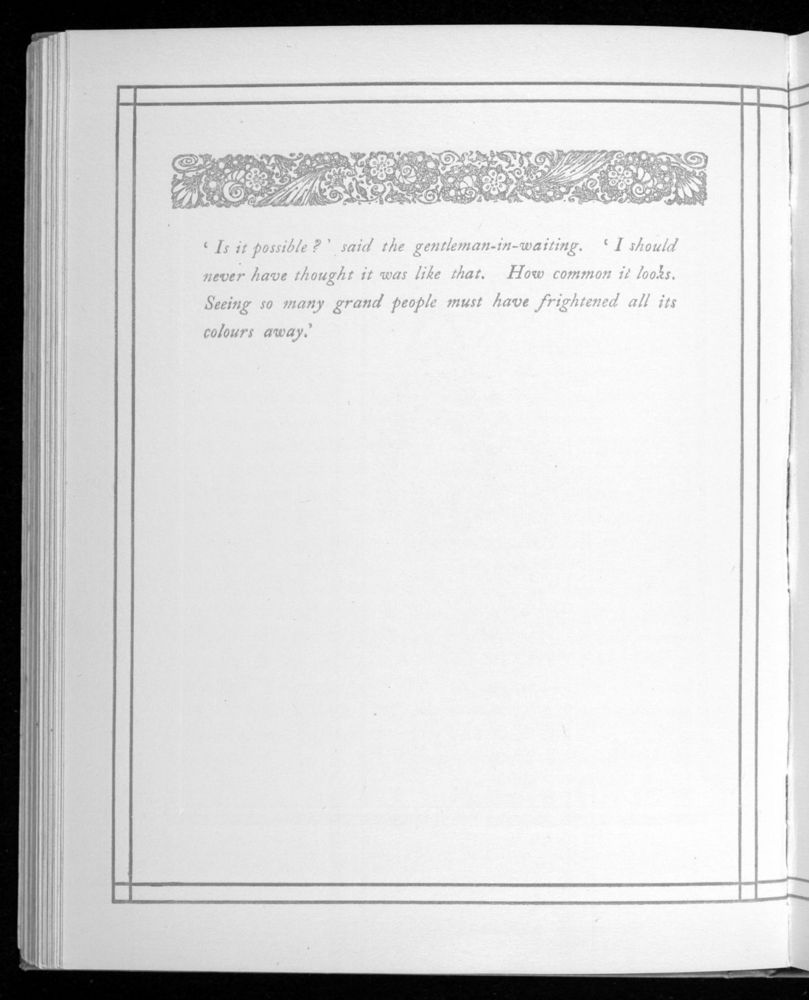 ‘ Is it possible ? ’ said the gentleman-in-waiting. ‘ I should
never have thought it was like that. How common it looks.
Seeing so many grand people must have frightened all its
colours away.’